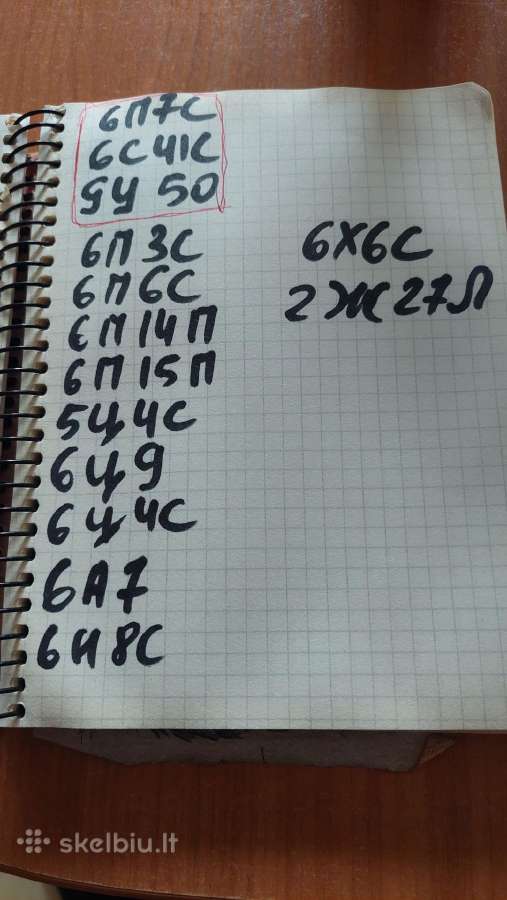 6П7С
6С41С
ГУ 50
6П3С
6П6С
6П14П
6П15П
5Ц4С
6Ц9
6Ц4С
6А7
6Н8С
6Х6С
2Ж27Л
skelbiu.lt